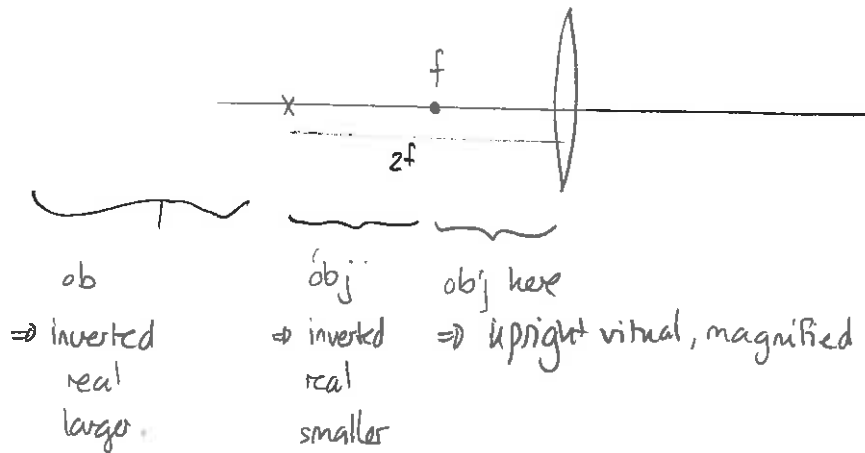 f
x
2f
ob
⇒ inverted
real
larger.
obj
⇒ inverted
real
smaller
obj here
⇒ upright vitual, magnified